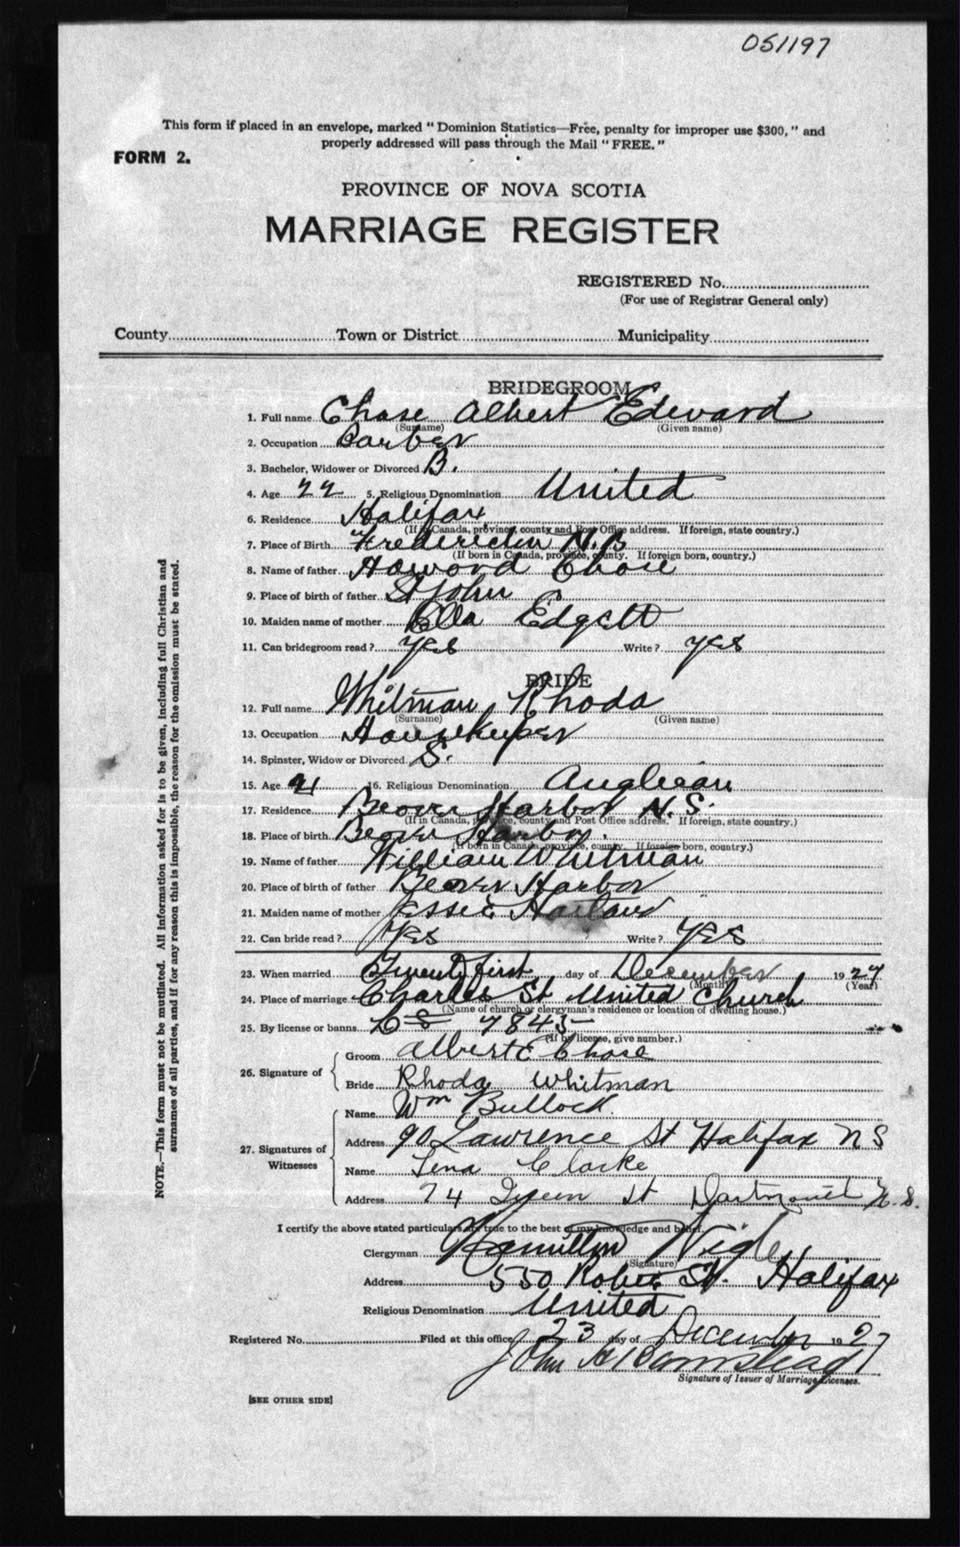 051197
This form if placed in an envelope, marked "Dominion Statistics—Free, penalty for improper use $300," and
properly addressed will pass through the Mail "FREE."
FORM 2.
PROVINCE OF NOVA SCOTIA
MARRIAGE REGISTER
REGISTERED No.
(For use of Registrar General only)
County Town or District Municipality
BRIDEGROOM
1. Full name Chase Albert Edward
(Surname) (Given name)
2. Occupation Barber
3. Bachelor, Widower or Divorced B.
4. Age 22 5. Religious Denomination United
6. Residence Halifax
(If in Canada, province, county and Post Office address. If foreign, state country.)
7. Place of Birth Fredericton N.B
(If born in Canada, province, county. If foreign born, country.)
8. Name of father Howard Chase
9. Place of birth of father St John
10. Maiden name of mother Ella Edgett
11. Can bridegroom read? yes Write? yes
BRIDE
12. Full name Whitman Rhoda
(Surname) (Given name)
13. Occupation Housekeeper
14. Spinster, Widow or Divorced S.
15. Age 21 16. Religious Denomination Anglican
17. Residence Beaver Harbor N.S.
(If in Canada, province, county and Post Office address. If foreign, state country.)
18. Place of birth Beaver Harbor.
(If born in Canada, province, county. If foreign born, country.)
19. Name of father William Whitman
20. Place of birth of father Beaver Harbor
21. Maiden name of mother Jessie
22. Can bride read? Yes Write? Yes
23. When married Twenty first day of December 1927
(Month) (Year)
24. Place of marriage Charles St United Church
(Name of church or clergyman's residence or location of dwelling house.)
25. By license or banns 7845
(If by license, give number.)
26. Signature of
Groom Albert E Chase
Bride Rhoda Whitman
27. Signatures of Witnesses
Name Wm Bullock
Address 90 Lawrence St Halifax N S
Name Lena Clarke
Address 74 St Dartmouth N.S.
I certify the above stated particulars are true to the best of my knowledge and belief.
Clergyman Hamilton
(Signature)
Address 550 Robie St. Halifax
Religious Denomination United
Registered No. Filed at this office 23 day of December 1927
John A
Signature of Issuer of Marriage Licenses.
[SEE OTHER SIDE]
NOTE.—This form must not be mutilated. All information asked for is to be given, including full Christian and
surnames of all parties, and if for any reason this is impossible, the reason for the omission must be stated.